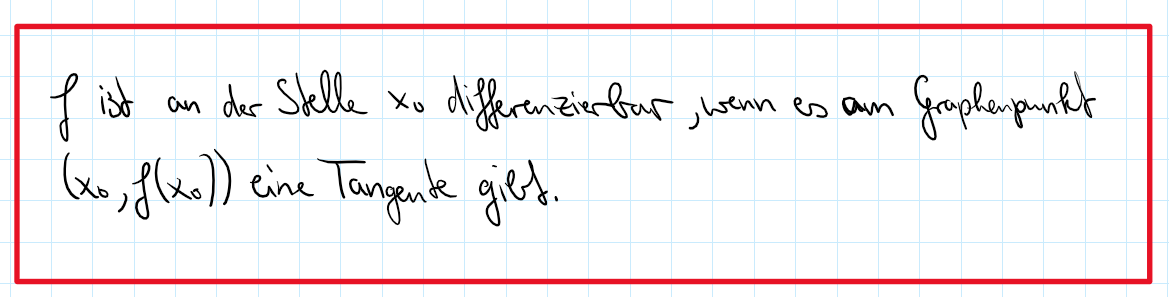 f ist an der Stelle x₀ differenzierbar, wenn es am Graphenpunkt
(x₀, f(x₀)) eine Tangente gibt.